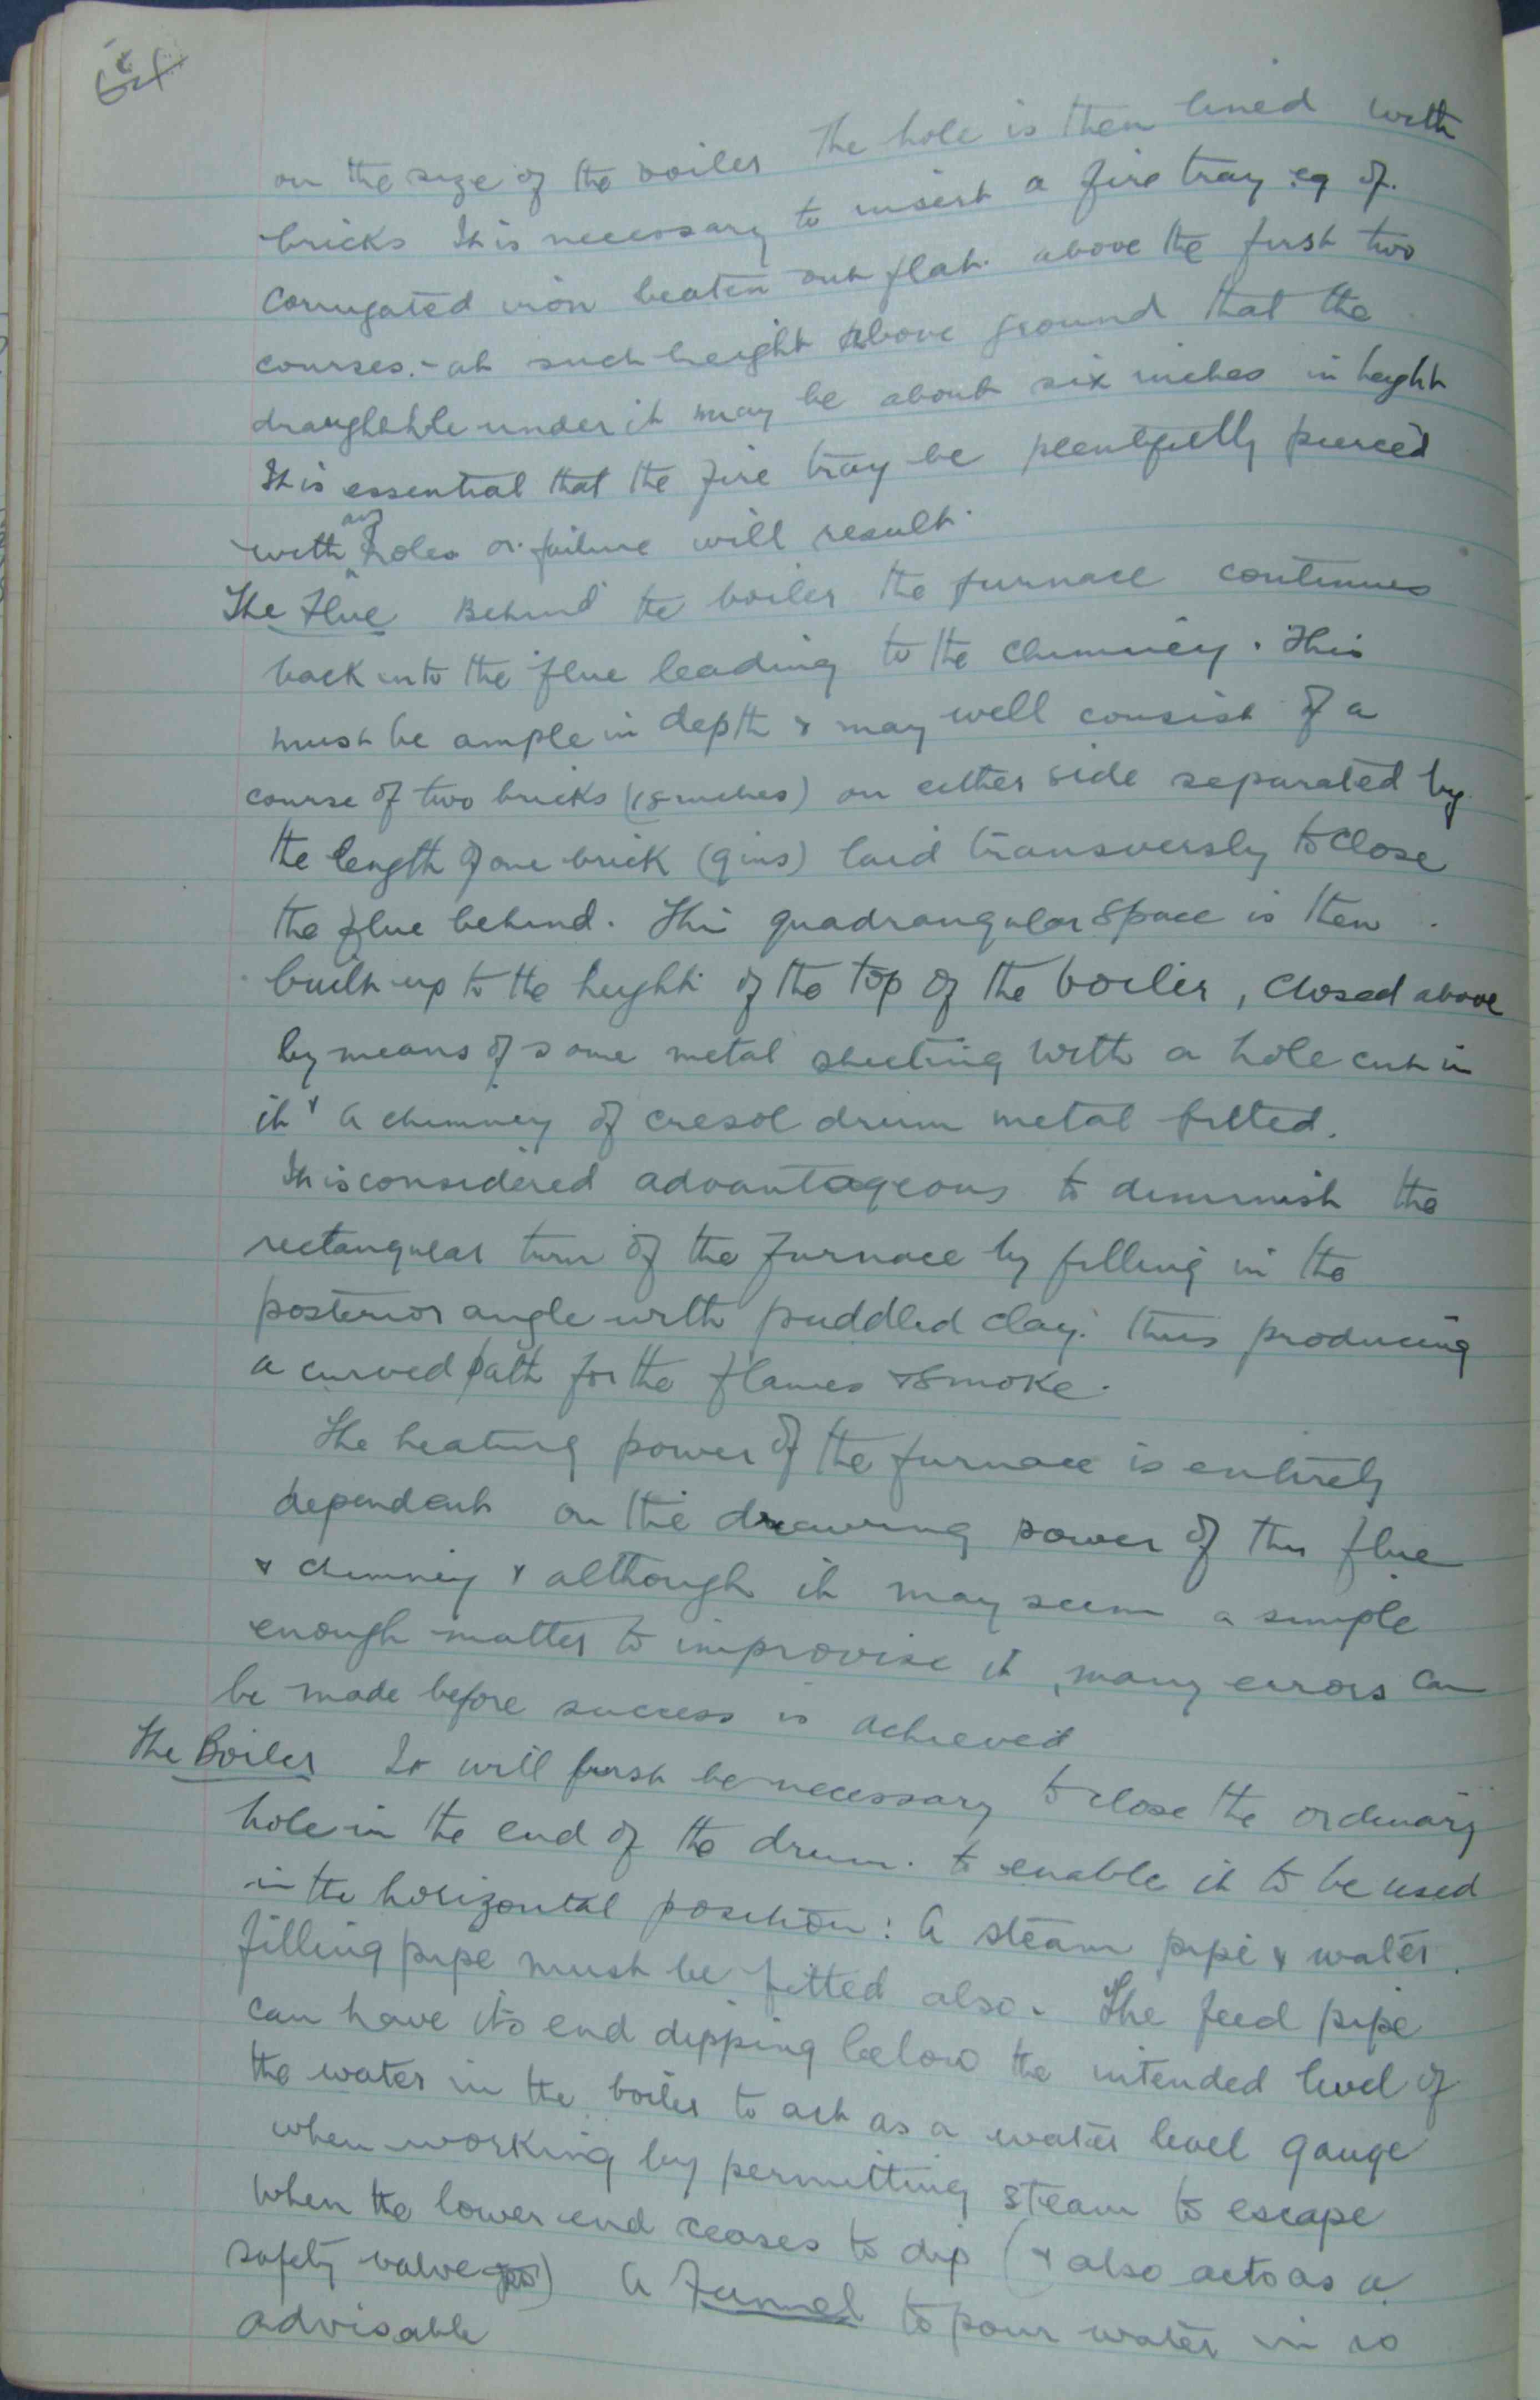 on the size of the boiler The hole is then lined with
bricks It is necessary to insert a fire tray eg of
corrugated iron beaten out flat. above the first two
courses. - at such height above ground that the
draughthole under it may be about six inches in height
It is essential that the fire tray be plentifully pierced
with air holes or failure will result.
The Flue Behind the boiler the furnace continues
back into the flue leading to the chimney. This
must be ample in depth & may well consist of a
course of two bricks (18 inches) on either side separated by
the length of one brick (9 ins) laid transversly to close
the flue behind. This quadrangular space is then
built up to the height of the top of the boiler, closed above
by means of some metal sheeting with a hole cut in
it & a chimney of cresol drum metal fitted.
It is considered advantageous to diminish the
rectangular turn of the furnace by filling in the
posterior angle with puddled clay. thus producing
a curved path for the flames & smoke.
The heating power of the furnace is entirely
dependent on the drawing power of this flue
& chimney & although it may seem a simple
enough matter to improvise it, many errors can
be made before success is achieved
The Boiler It will first be necessary to close the ordinary
hole in the end of the drum. to enable it to be used
in the horizontal position: A steam pipe & water
filling pipe must be fitted also. The feed pipe
can have its end dipping below the intended level of
the water in the boiler to act as a water level gauge
when working by permitting steam to escape
when the lower end ceases to dip (& also acts as a
safety valve) A Funnel to pour water in is
advisable